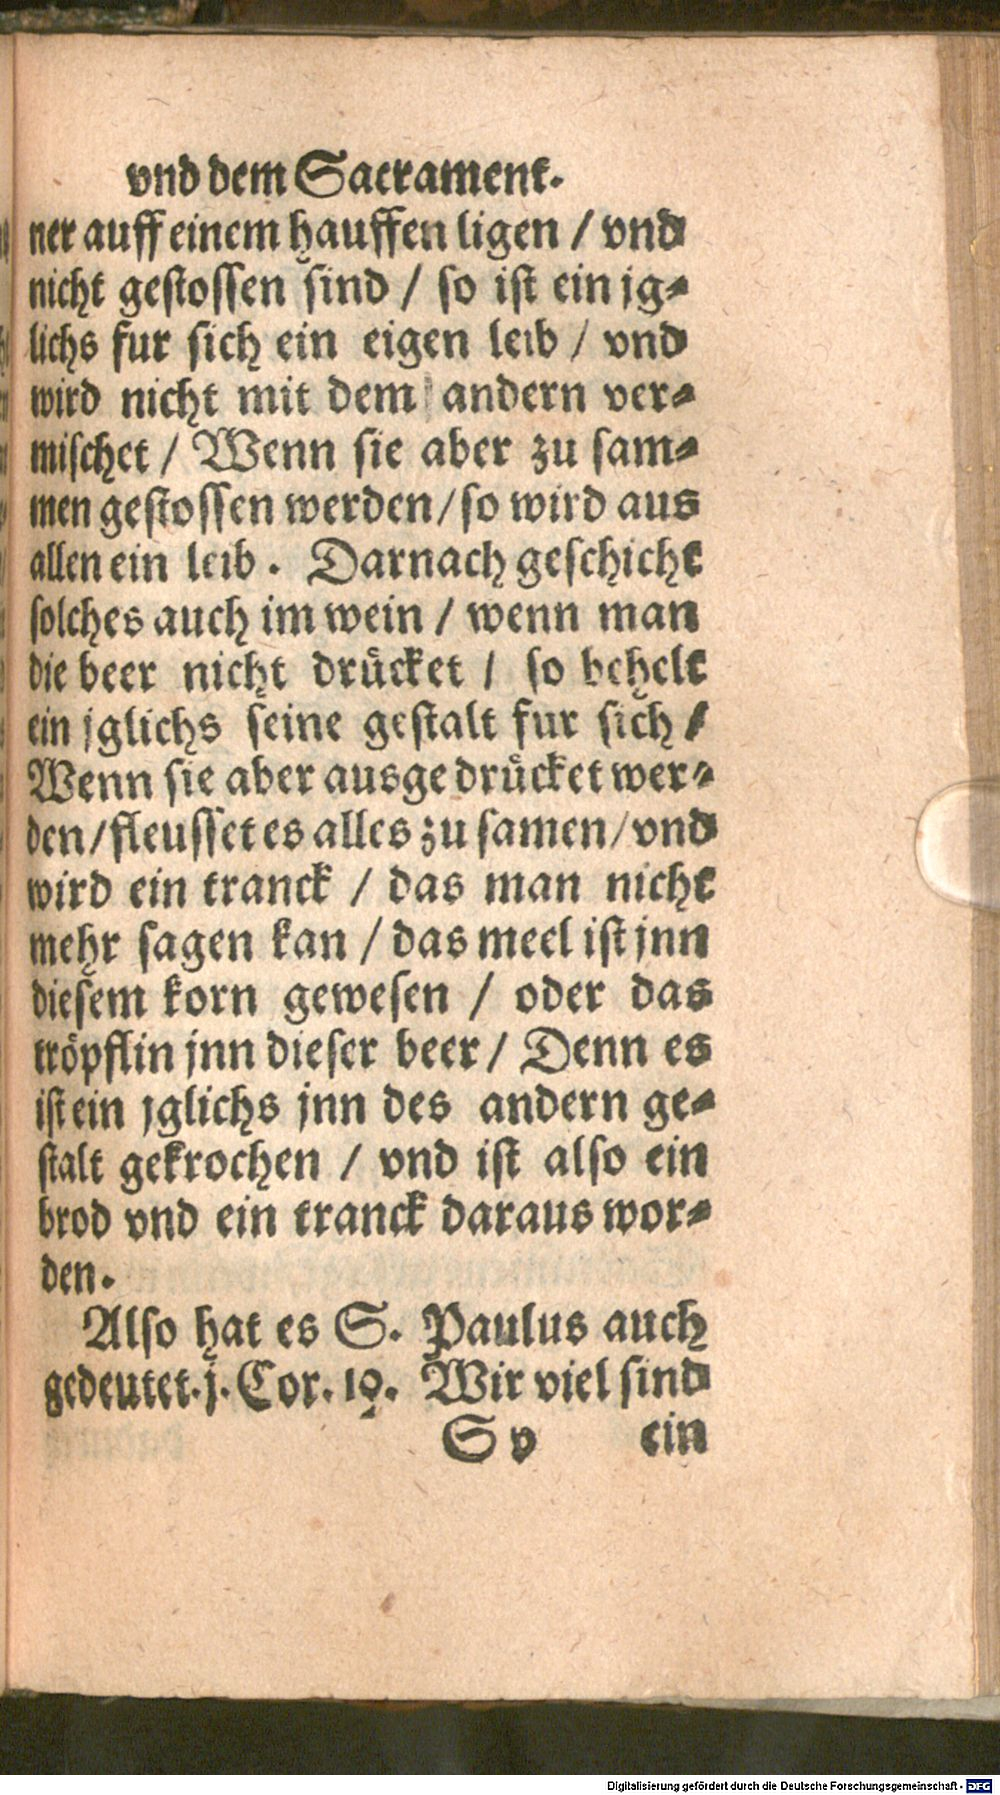 vnd dem Sacrament.
ner auff einem hauffen ligen / vnd
nicht gestossen sind / so ist ein jg⸗
lichs fur sich ein eigen leib / vnd
wird nicht mit dem andern ver⸗
mischet / Wenn sie aber zu sam⸗
men gestossen werden / so wird aus
allen ein leib. Darnach geschicht
solches auch im wein / wenn man
die beer nicht druͤcket / so behelt
ein jglichs seine gestalt fur sich /
Wenn sie aber ausgedruͤcket wer⸗
den / fleusset es alles zu samen / vnd
wird ein tranck / das man nicht
mehr sagen kan / das meel ist jnn
diesem korn gewesen / oder das
troͤpflin jnn dieser beer / Denn es
ist ein jglichs jnn des andern ge⸗
stalt gekrochen / vnd ist also ein
brod vnd ein tranck daraus wor⸗
den.
Also hat es S. Paulus auch
gedeutet. j. Cor. 10. Wir viel sind
S v ein
Digitalisierung gefördert durch die Deutsche Forschungsgemeinschaft - DFG